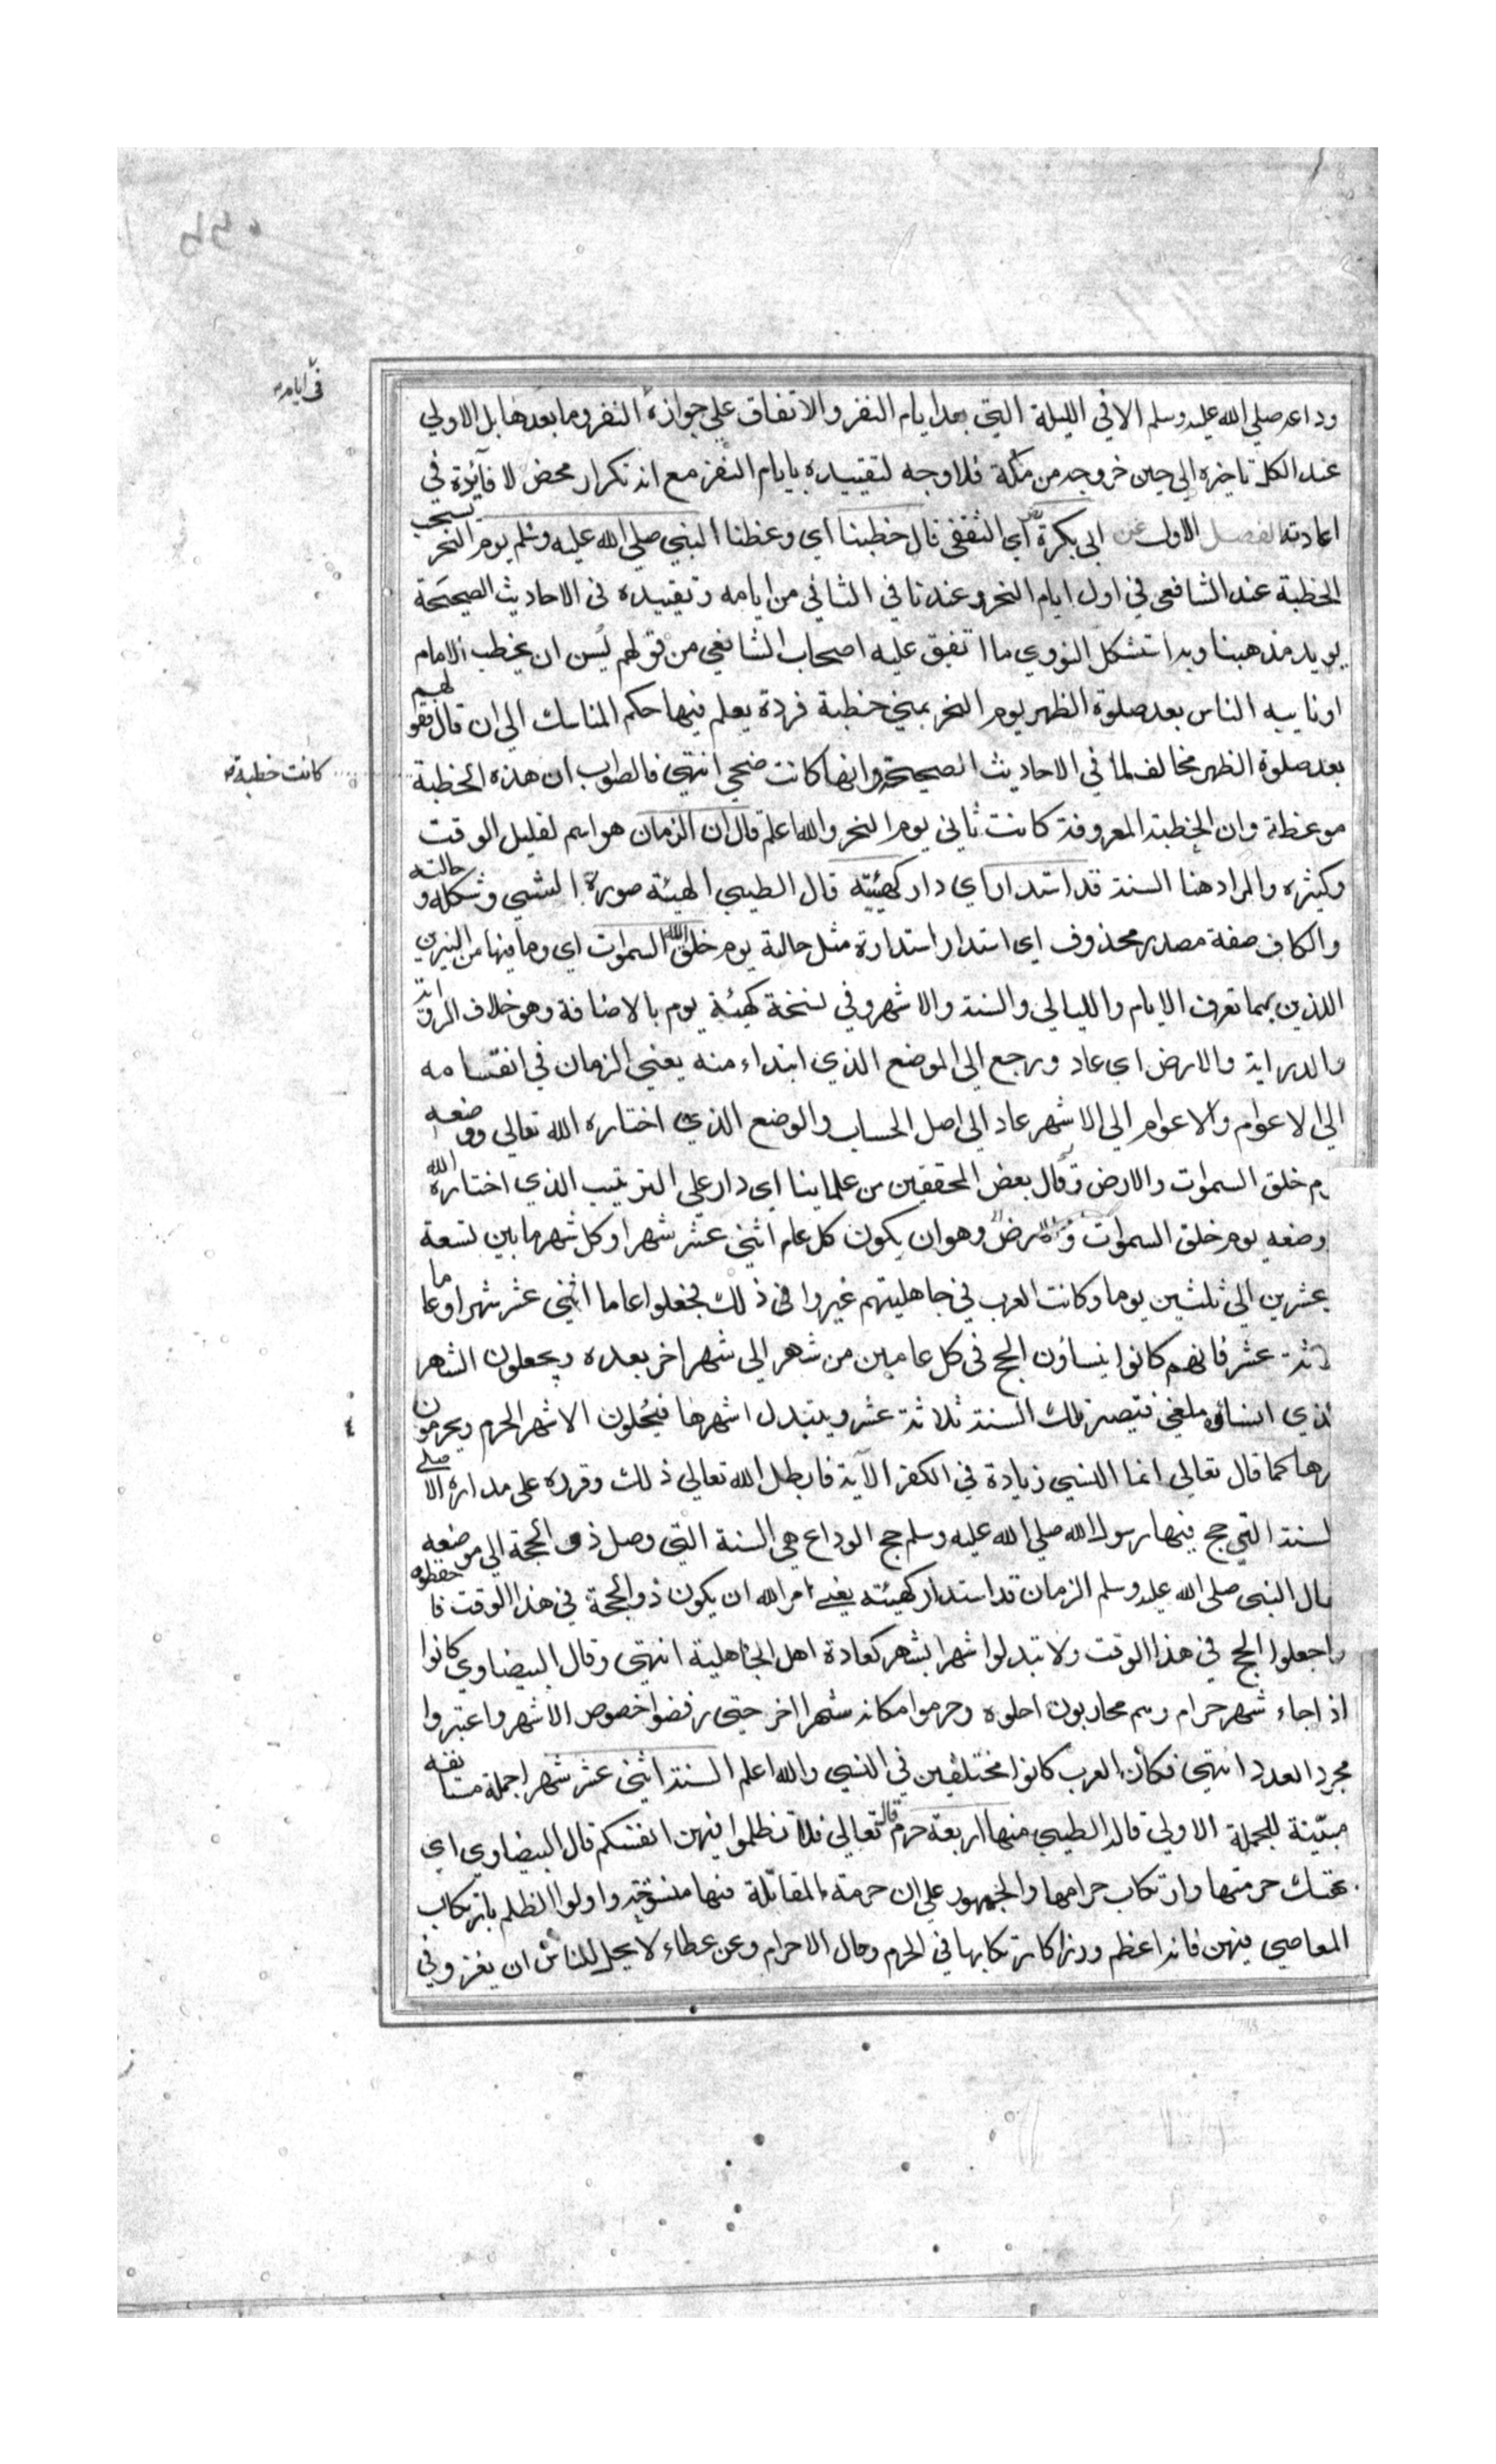 في ايام صح
وداعه صلي الله عليه وسلم الا في الليلة التي بعد ايام النفر والاتفاق علي جوازه النفر وما بعدها بل الاولي
عند الكل تاخيره الي حين خروجه من مكة فلا وجه لتقييده بايام النفر مع انه تكرار محض لا فآئدة في
اعادته الفصل الاول عن ابي بكرة رض اي الثقفي قال خطبنا اي وعظنا النبي صلي الله عليه وسلم يوم النحر يستحب
الخطبة عند الشافعي في اول ايام النحر وعندنا في الثاني من ايامه وتقييده في الاحاديث الصحيحة
يويد مذهبنا وبه استشكل النووي ما اتفق عليه اصحاب الشافعي من قولهم يسن ان يخطب الامام
او نايبه الناس بعد صلوة الظهر يوم النحر بمني خطبة فردة يعلم فيها حكم المناسك الي ان قال فقولهم
بعد صلوة الظهر مخالف لما في الاحاديث الصحيحة وانها كانت ضحي انتهي فالصواب ان هذه الخطبة
كانت خطبة صح
موعظة وان الخطبة المعروفة كانت ثاني يوم النحر والله اعلم قال ان الزمان هو اسم لقليل الوقت
وكثيره والمراد هنا السنة قد استدار اي دار كهيئته قال الطيبي الهيئة صورة الشيي وشكله وحالته
والكاف صفة مصدر محذوف اي استدار استدارة مثل حالة يوم خلق الله السموات اي وما فيها من النيرين
اللذين بهما تعرف الايام والليالي والسنة والاشهر وفي نسخة كهيئة يوم بالاضافة وهو خلاف الرواية
والدراية والارض اي عاد ورجع الي الموضع الذي ابتداء منه يعني الزمان في انقسامه
الي الاعوام والاعوام الي الاشهر عاد الي اصل الحساب والوضع الذي اختاره الله تعالي ووضعه
م خلق السموات والارض وقال بعض المحققين من علماينا اي دار علي الترتيب الذي اختاره الله
وضعه يوم خلق السموات والارض وهو ان يكون كل عام اثني عشر شهرا وكل شهر ما بين تسعة
عشرين الي ثلثين يوما وكانت العرب في جاهليتهم غيروا في ذلك فجعلوا عاما اثني عشر شهرا وعاما
ثة عشر فانهم كانوا ينساون الحج في كل عامين من شهر الي شهر اخر بعده ويجعلون الشهر
لذي انساوه ملغي فتصير تلك السنة ثلاثة عشر ويتبدل اشهرها فيحلون الاشهر الحرم ويحرمون
رها كما قال تعالي انما النسيي زيادة في الكفر الآية فابطل الله تعالي ذلك وقرره علي مداره الاصلي
لسنة التي حج فيها رسول الله صلي الله عليه وسلم حج الوداع هي السنة التي وصل ذو الحجة الي موضعه
ال النبي صلي الله عليه وسلم الزمان قد استدار كهيئته يعني امر الله ان يكون ذو الحجة في هذا الوقت فاحفظوه
واجعلوا الحج في هذا الوقت ولا تبدلوا شهرا بشهر كعادة اهل الجاهلية انتهي وقال البيضاوي كانوا
اذا جاء شهر حرام وهم محاربون احلوه وحرموا مكانه شهرا اخر حتي رفضوا خصوص الاشهر واعتبروا
مجرد العدد انتهي فكان العرب كانوا مختلفين في النسيي والله اعلم السنة اثني عشر شهرا جملة مستانفة
مبينة للجملة الاولي قاله الطيبي منها اربعة حرم قال تعالي فلا تظلموا فيهن انفسكم قال البيضاوي اي
بهتك حرمتها وارتكاب حرامها والجمهور علي ان حرمة المقاتلة فيها منسوخة واولوا الظلم بارتكاب
المعاصي فيهن فانه اعظم وزرا كارتكابها في الحرم وحال الاحرام وعن عطاء لا يحل للناس ان يغزو في